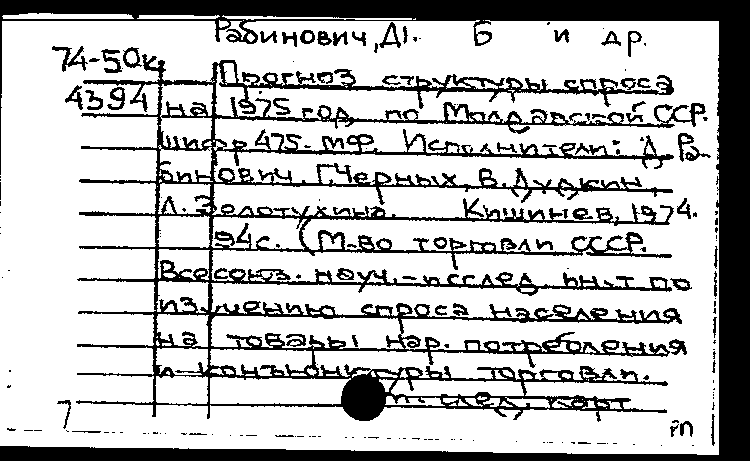 Рабинович, Д. Б и др.
74-50к
4394
Прогноз структуры спроса
на 1975 год по Молдавской ССР.
Шифр 475-МФ. Исполнители: Д. Ра-
бинович, Г. Черных, В. Дудкин,
Л. Золотухина. Кишинев, 1974.
94с. (М-во торговли СССР.
Всесоюз. науч.-исслед. ин-т по
изучению спроса населения
на товары нар. потребления
и конъюнктуры торговли.
см. след. карт.
рп